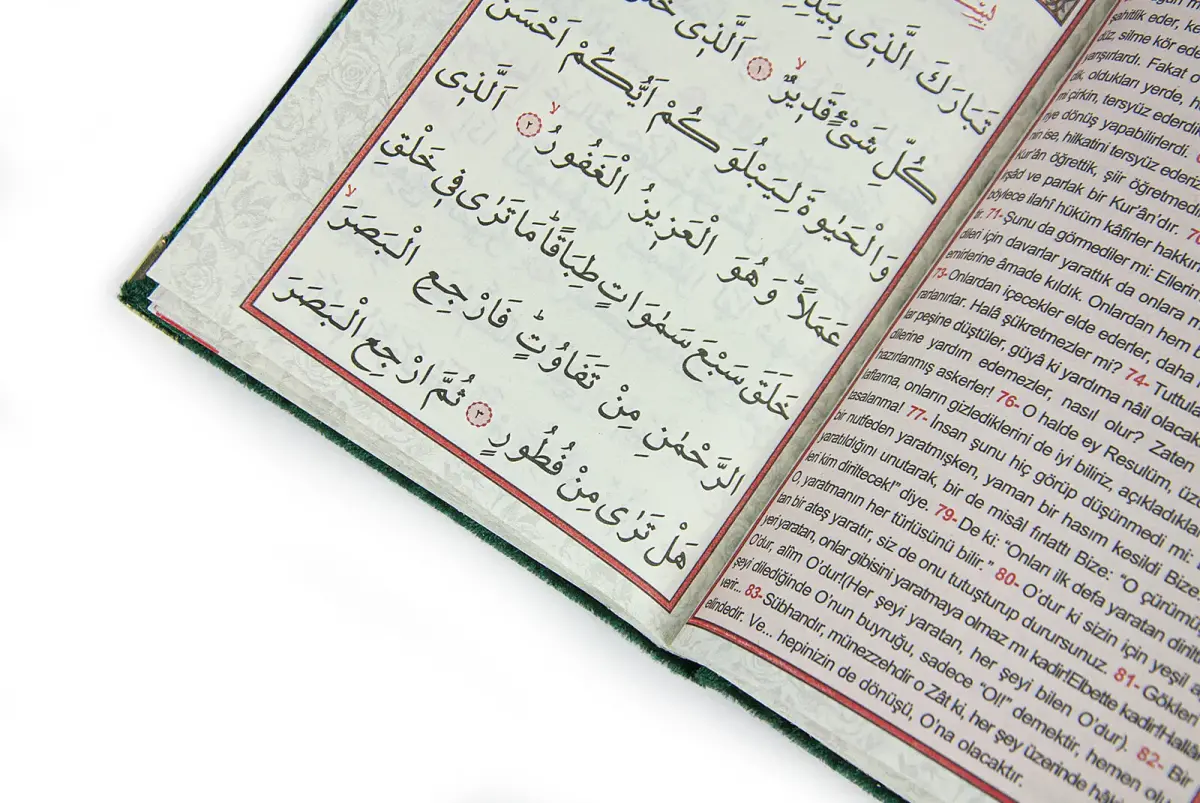 تَبَارَكَ الَّذِى بِيَدِهِ
كُلِّ شَىْءٍ قَدِيرٌۙ ١ اَلَّذِى خَلَقَ
وَالْحَيٰوةَ لِيَبْلُوَكُمْ اَيُّكُمْ اَحْسَنُ
عَمَلاًۜ وَهُوَ الْعَزِيزُ الْغَفُورُۙ ٢ اَلَّذِى
خَلَقَ سَبْعَ سَمٰوَاتٍ طِبَاقًاۜ مَا تَرٰى فِى خَلْقِ
الرَّحْمٰنِ مِنْ تَفَاوُتٍۜ فَارْجِعِ الْبَصَرَۙ
هَلْ تَرٰى مِنْ فُطُورٍ ٣ ثُمَّ ارْجِعِ الْبَصَرَ
şahitlik eder,
düz, silme kör
yarışırlardı. Fakat
oldukları yerde,
çirkin, tersyüz
dönüş yapabilirlerdi.
ise, hilkatini tersyüz ederiz
Kur'ân öğrettik, şiir öğretmedi
ve parlak bir Kur'ân'dır.
böylece ilahî hüküm kâfirler
71- Şunu da görmediler mi: Ellerin
için davarlar yarattık da onlara
emirlerine âmade kıldık. Onlardan hem
73- Onlardan içecekler elde ederler, daha
Halâ şükretmezler mi? 74- Tuttular
peşine düştüler, güyâ ki yardıma nâil olacak
dilerine yardım edemezler,
hazırlanmış askerler! 76- O halde ey Resulüm,
onların gizlediklerini de iyi biliriz,
tasalanma! 77- İnsan şunu hiç görüp düşünmedi mi:
bir nutfeden yaratmışken, yaman bir hasım kesildi Bize
yaratıldığını unutarak, bir de misâl fırlattı Bize: "O çürümü
kim diriltecek!" diye. 79- De ki: "Onları ilk defa yaratan diril
O, yaratmanın her türlüsünü bilir." 80- O'dur ki sizin için yeşil
tan bir ateş yaratır, siz de onu tutuşturup durursunuz. 81- Gökleri
yeri yaratan, onlar gibisini yaratmaya olmaz mı kadir!Elbette kadir!Hallâk
O'dur, alîm O'dur!(Her şeyi yaratan, her şeyi bilen O'dur). 82- Bir
şeyi dilediğinde O'nun buyruğu, sadece "Ol!" demektir, hemen olu
verir... 83- Sübhandır, münezzehdir o Zât ki, her şey üzerinde
elindedir. Ve... hepinizin de dönüşü, O'na olacaktır.